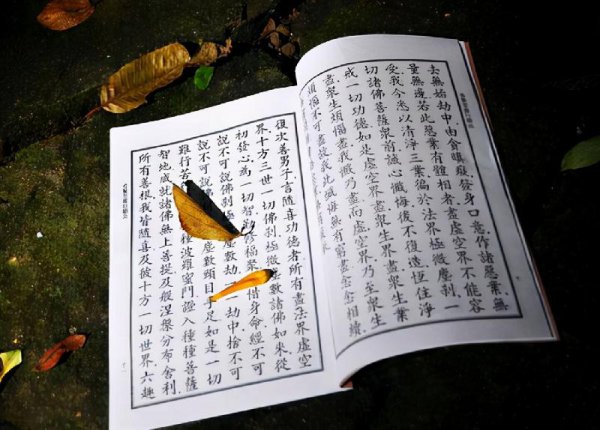 去無始劫中，由貪瞋癡發身口意，作諸惡業，無
量無邊，若此惡業有體相者，盡虛空界不能容
受。我今悉以清淨三業，徧於法界極微塵剎，一
切諸佛菩薩眾前，誠心懺悔，後不復造，恆住淨
戒一切功德。如是虛空界盡，眾生界盡，眾生業
盡，眾生煩惱盡，我懺乃盡，而虛空界乃至眾生
煩惱不可盡故，我此懺悔無有窮盡，念念相續
復次善男子，言隨喜功德者，所有盡法界，虛空
界，十方三世一切佛剎，極微塵數諸佛如來，從
初發心，為一切智，勤修福聚，惜身命，經不可
說不可說佛剎極微塵數劫，一一劫中，捨不可
說不可說佛塵數頭目手足，如是一切
難行苦種波羅蜜門，證入種種菩薩
智地，成就諸佛無上菩提，及般涅槃，分布舍利，
所有善根，我皆隨喜，及彼十方一切世界，六趣